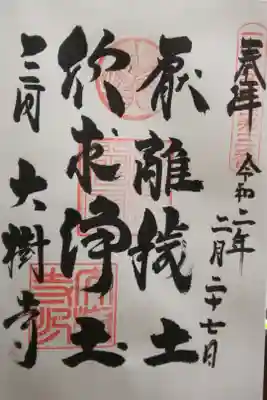 奉拝
令和二年
二月二十七日
厭離穢土
欣求浄土
三河 大樹寺